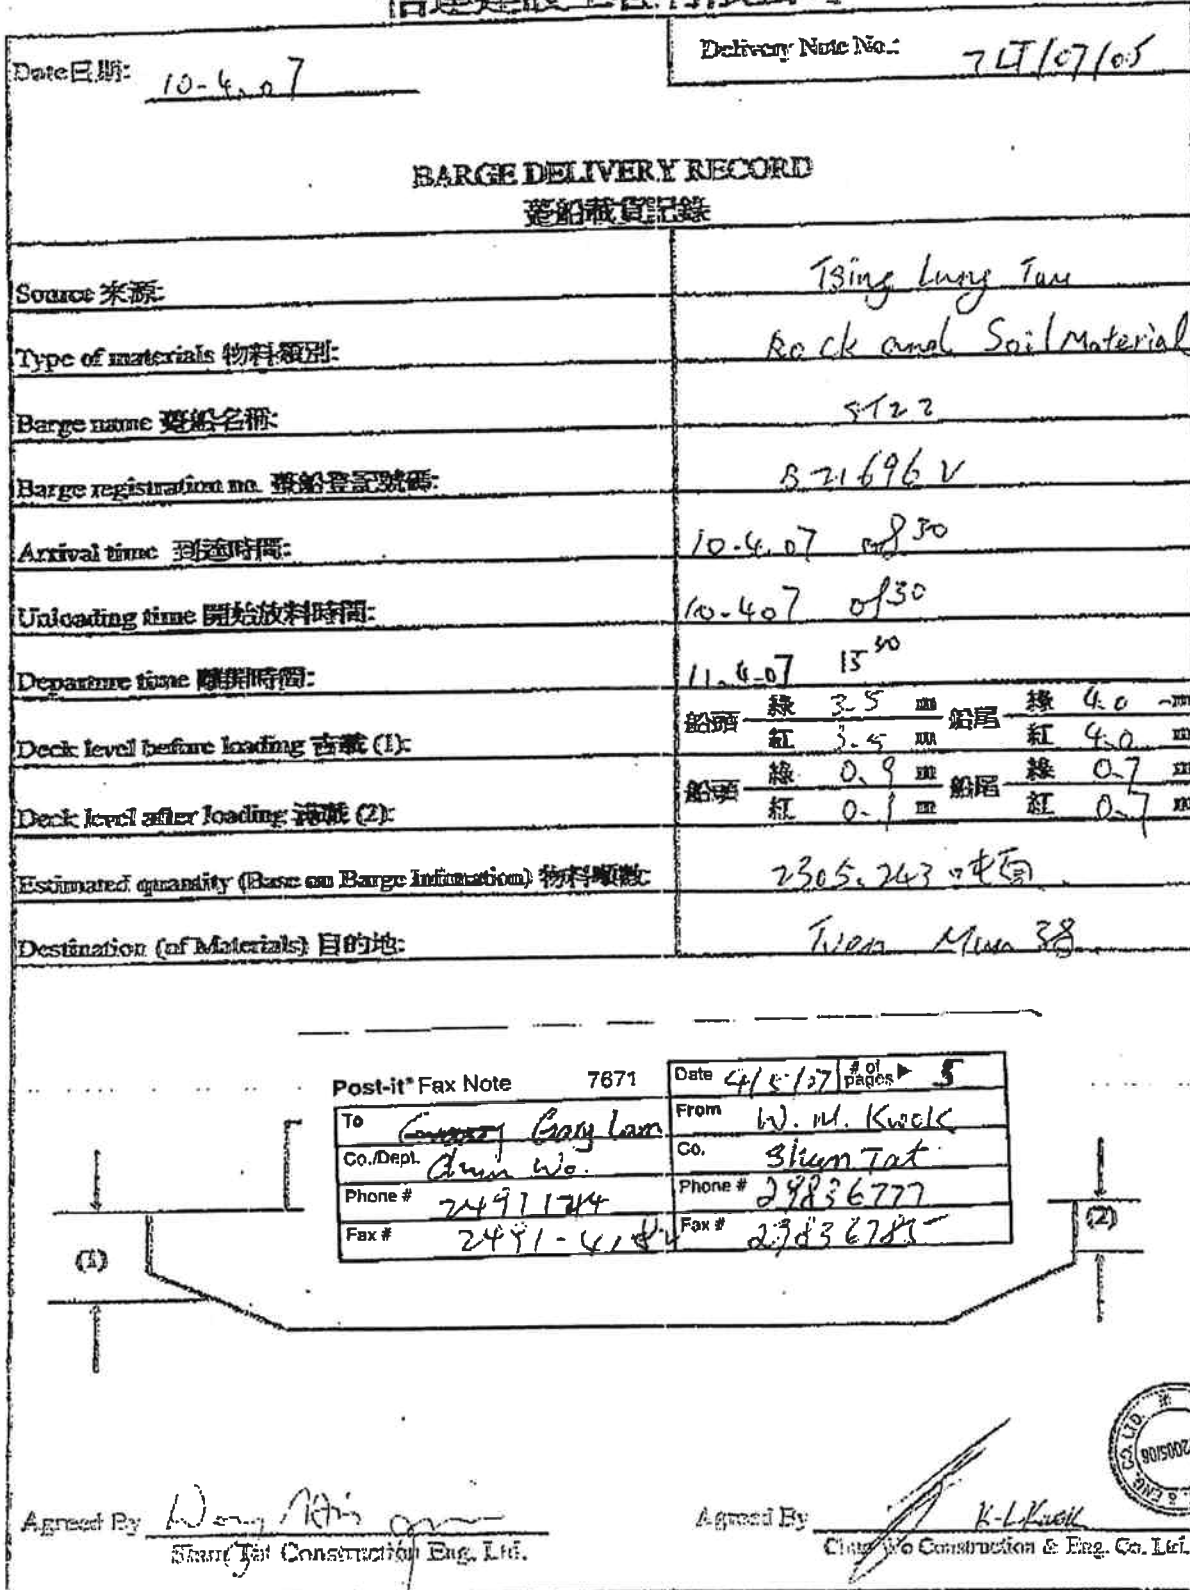 Delivery Note No.: TLT/07/05
Date日期: 10-4.07
BARGE DELIVERY RECORD
躉船載貨記錄
Source 來源: Tsing Lung Tau
Type of materials 物料類別: Rock and Soil Material
Barge name 躉船名稱: ST22
Barge registration no. 躉船登記號碼: B21696V
Arrival time 到達時間: 10.4.07 0830
Unloading time 開始放料時間: 10-407
Departure time 離開時間: 11.4.07 15 30
Deck level before loading 吉載 (1): 船頭 綠 3.5 m 船尾 綠 4.0 m
紅 3.5 m 紅 4.0 m
Deck level after loading 滿載 (2): 船頭 綠 0.9 m 船尾 綠 0.7 m
紅 m 紅 0.7 m
Estimated quantity (Base on Barge Infomation) 物料噸數: 2305.243
Destination (of Materials) 目的地: Tuen Mun 38
Post-it® Fax Note 7671 Date 4/5/07 # of pages ▶ 5
To Gary Lam From W. M. Kwok
Co./Dept. Chun Wo. Co. Shun Tat
Phone # Phone # 29836777
Fax # Fax # 29836785
(1)
(2)
Agreed By Wong
Shun Tat Construction Eng. Ltd.
Agreed By K-L Kwok
Chun Wo Construction & Eng. Co. Ltd.